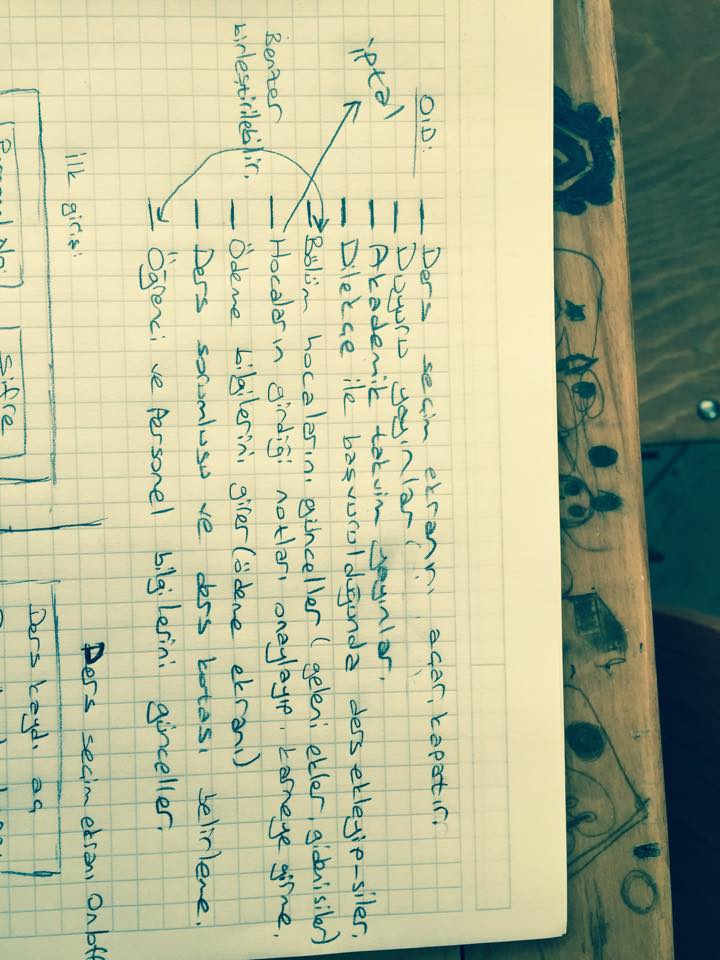 OİD:
— Ders seçim ekranını açar, kapatır.
— Duyuru yayınlar.
— Akademik takvim yayınlar.
— Dilekçe ile başvurulduğunda ders ekleyip-siler.
— Bölüm hocalarını günceller (geleni ekler, gideni siler)
— Hocaların girdiği notları onaylayıp, karneye girme.
— Ödeme bilgilerini girer (ödeme ekranı)
— Ders sorumlusu ve ders kotası belirleme.
— Öğrenci ve Personel bilgilerini günceller.
iptal
Benzer
birleştirilebilir.
ilk giriş:
Şifre
Ders seçim ekranı
Ders kaydı aç